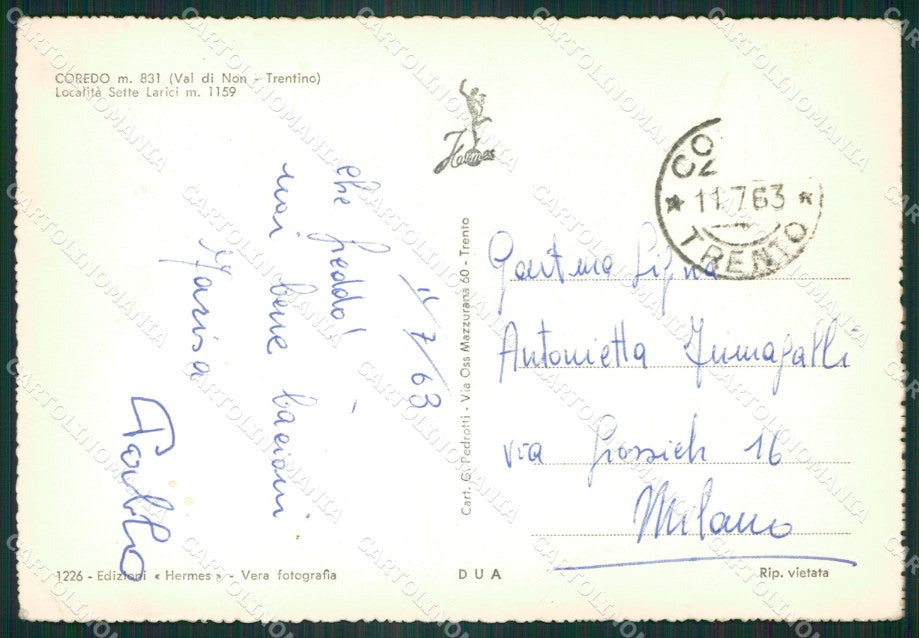 COREDO m. 831 (Val di Non - Trentino)
Località Sette Larici m. 1159
Hermes
CO
11.7.63
TRENTO
11/7/63
che freddo!
noi bene bacioni
Marisa
Cart. G. Pedrotti - Via Oss Mazzurana 60 - Trento
Gent.ma Sig.na
Antonietta Fumagalli
via Grossich 16
Milano
1226 - Edizioni « Hermes » - Vera fotografia
DUA
Rip. vietata
CARTOLINOMANIA